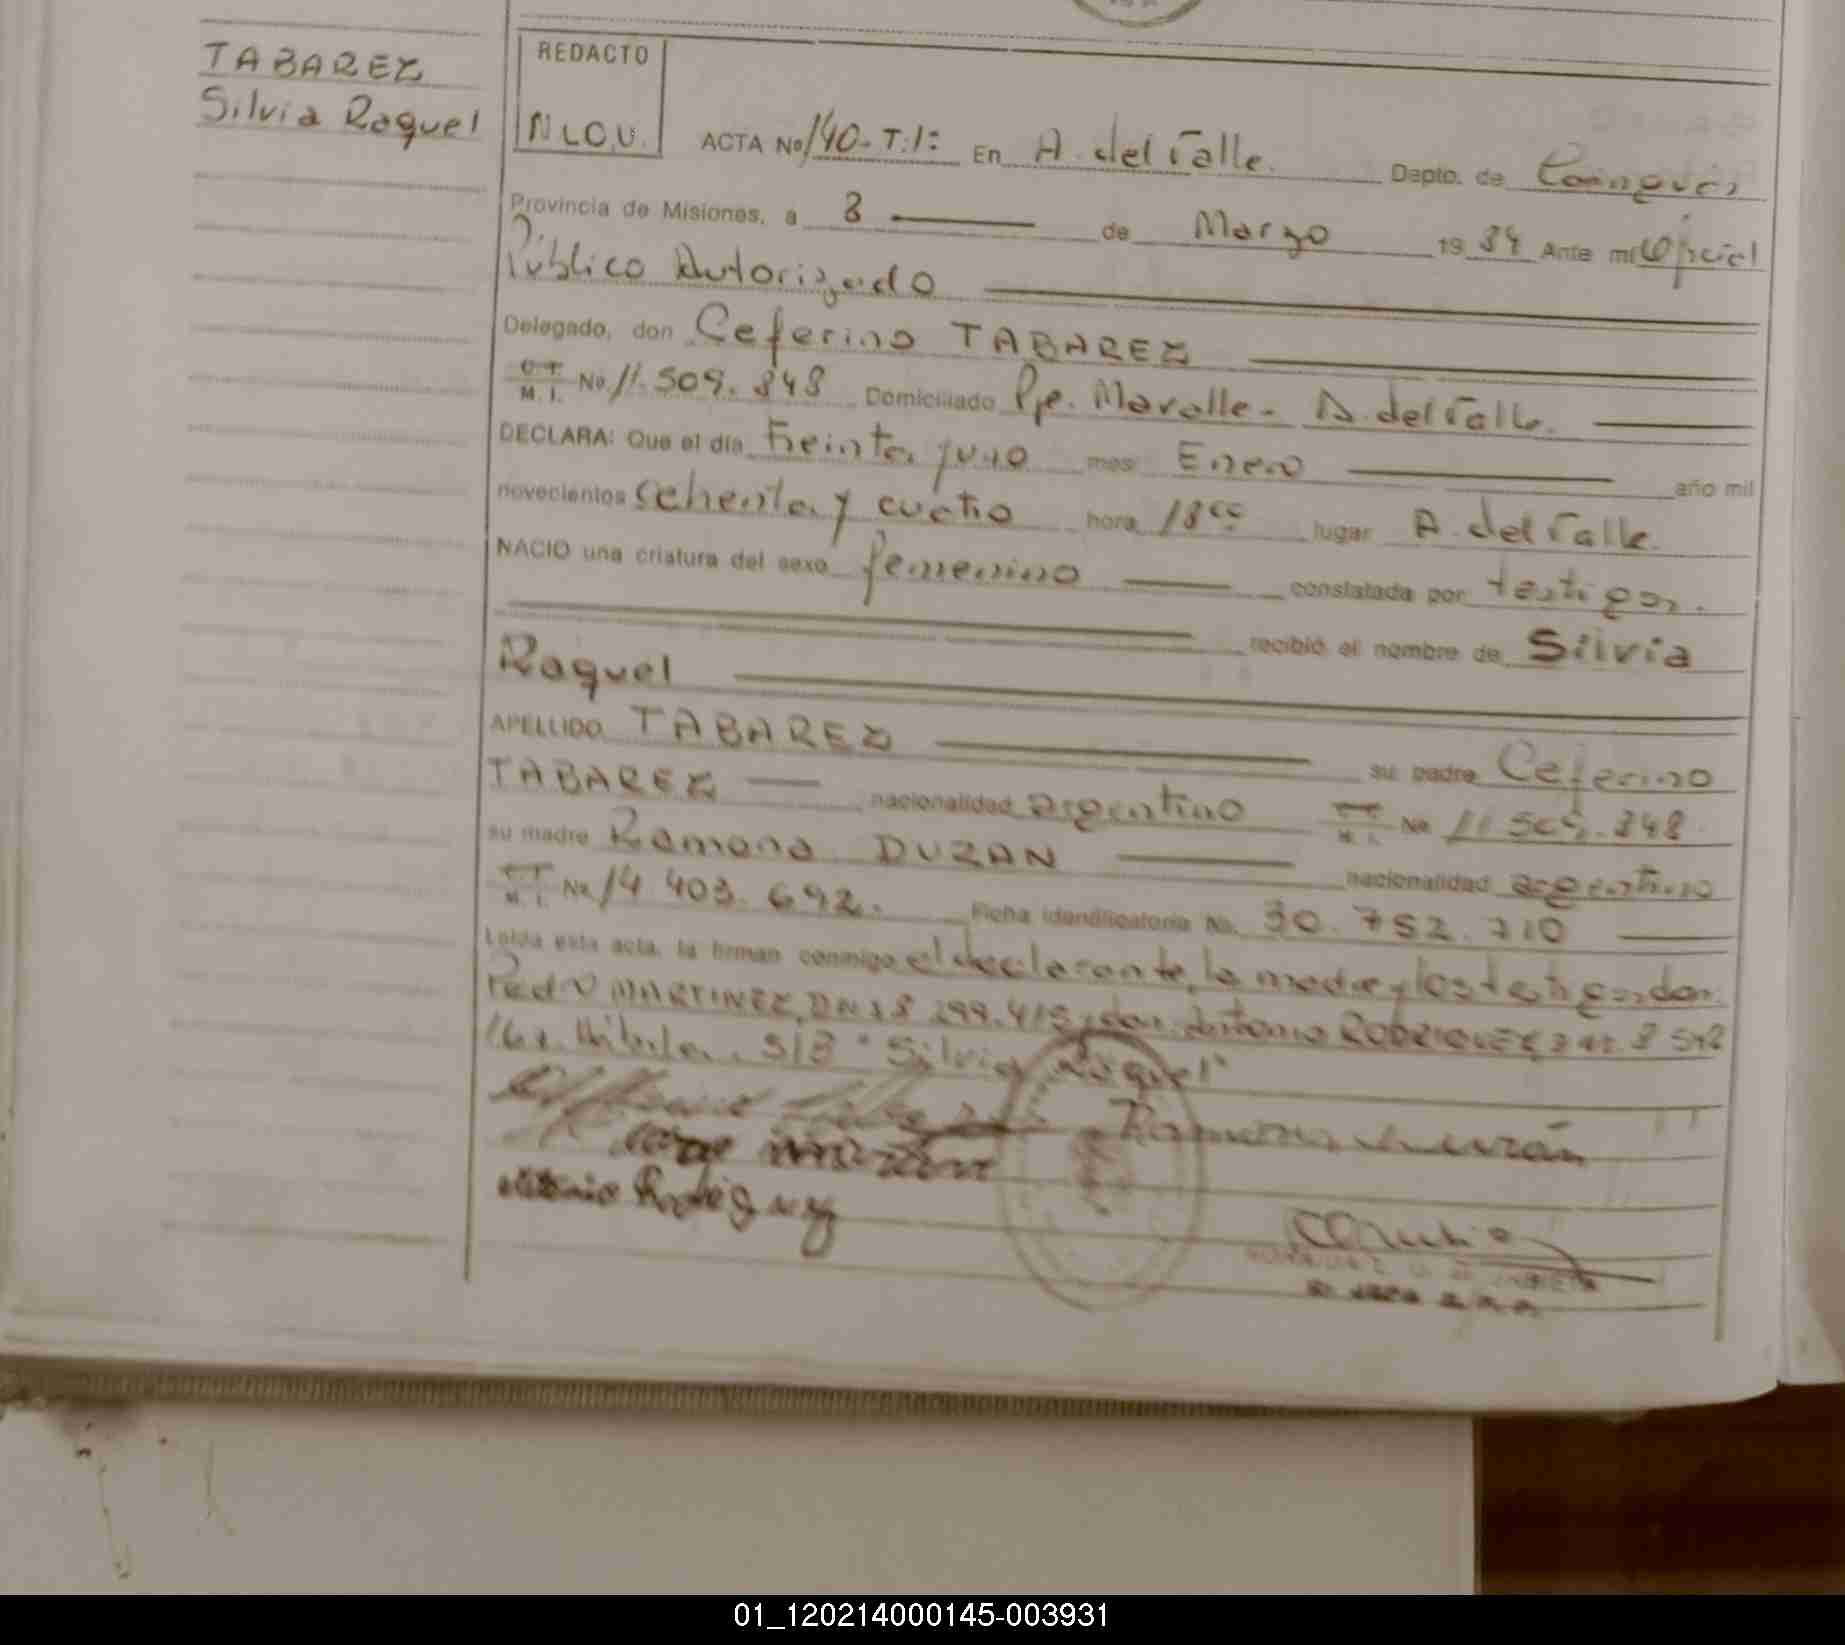 TABAREZ
Silvia Raquel
REDACTO
ACTA No 140- T:1: En A. del Valle. Depto. de Cainguás
Provincia de Misiones, a 8 de Marzo 19 84 Ante mi Oficial
Público Autorizado
Delegado, don Ceferino TABAREZ
M. I. No 11.509.848 Domiciliado Pje. Maralle- A. del Valle.
DECLARA: Que el día treinta y uno mes Enero año mil
novecientos ochenta y cuatro hora 18 lugar A. del Valle.
NACIO una criatura del sexo femenino constatada por testigos.
recibió el nombre de Silvia
Raquel
APELLIDO TABAREZ su padre Ceferino
TABAREZ nacionalidad argentino M. I. No 11 509.848
su madre Ramona DURAN nacionalidad argentina
M. I. No 14 403.692. Ficha Identificatoria No. 30.752.710
Leida esta acta, la firman conmigo el declarante, la madre y los testigos don
Pedro MARTINEZ, y don Antonio RODRIGUEZ
S/B "Silvia Raquel"
Ramona Durán
Antonio Rodriguez
01_120214000145-003931